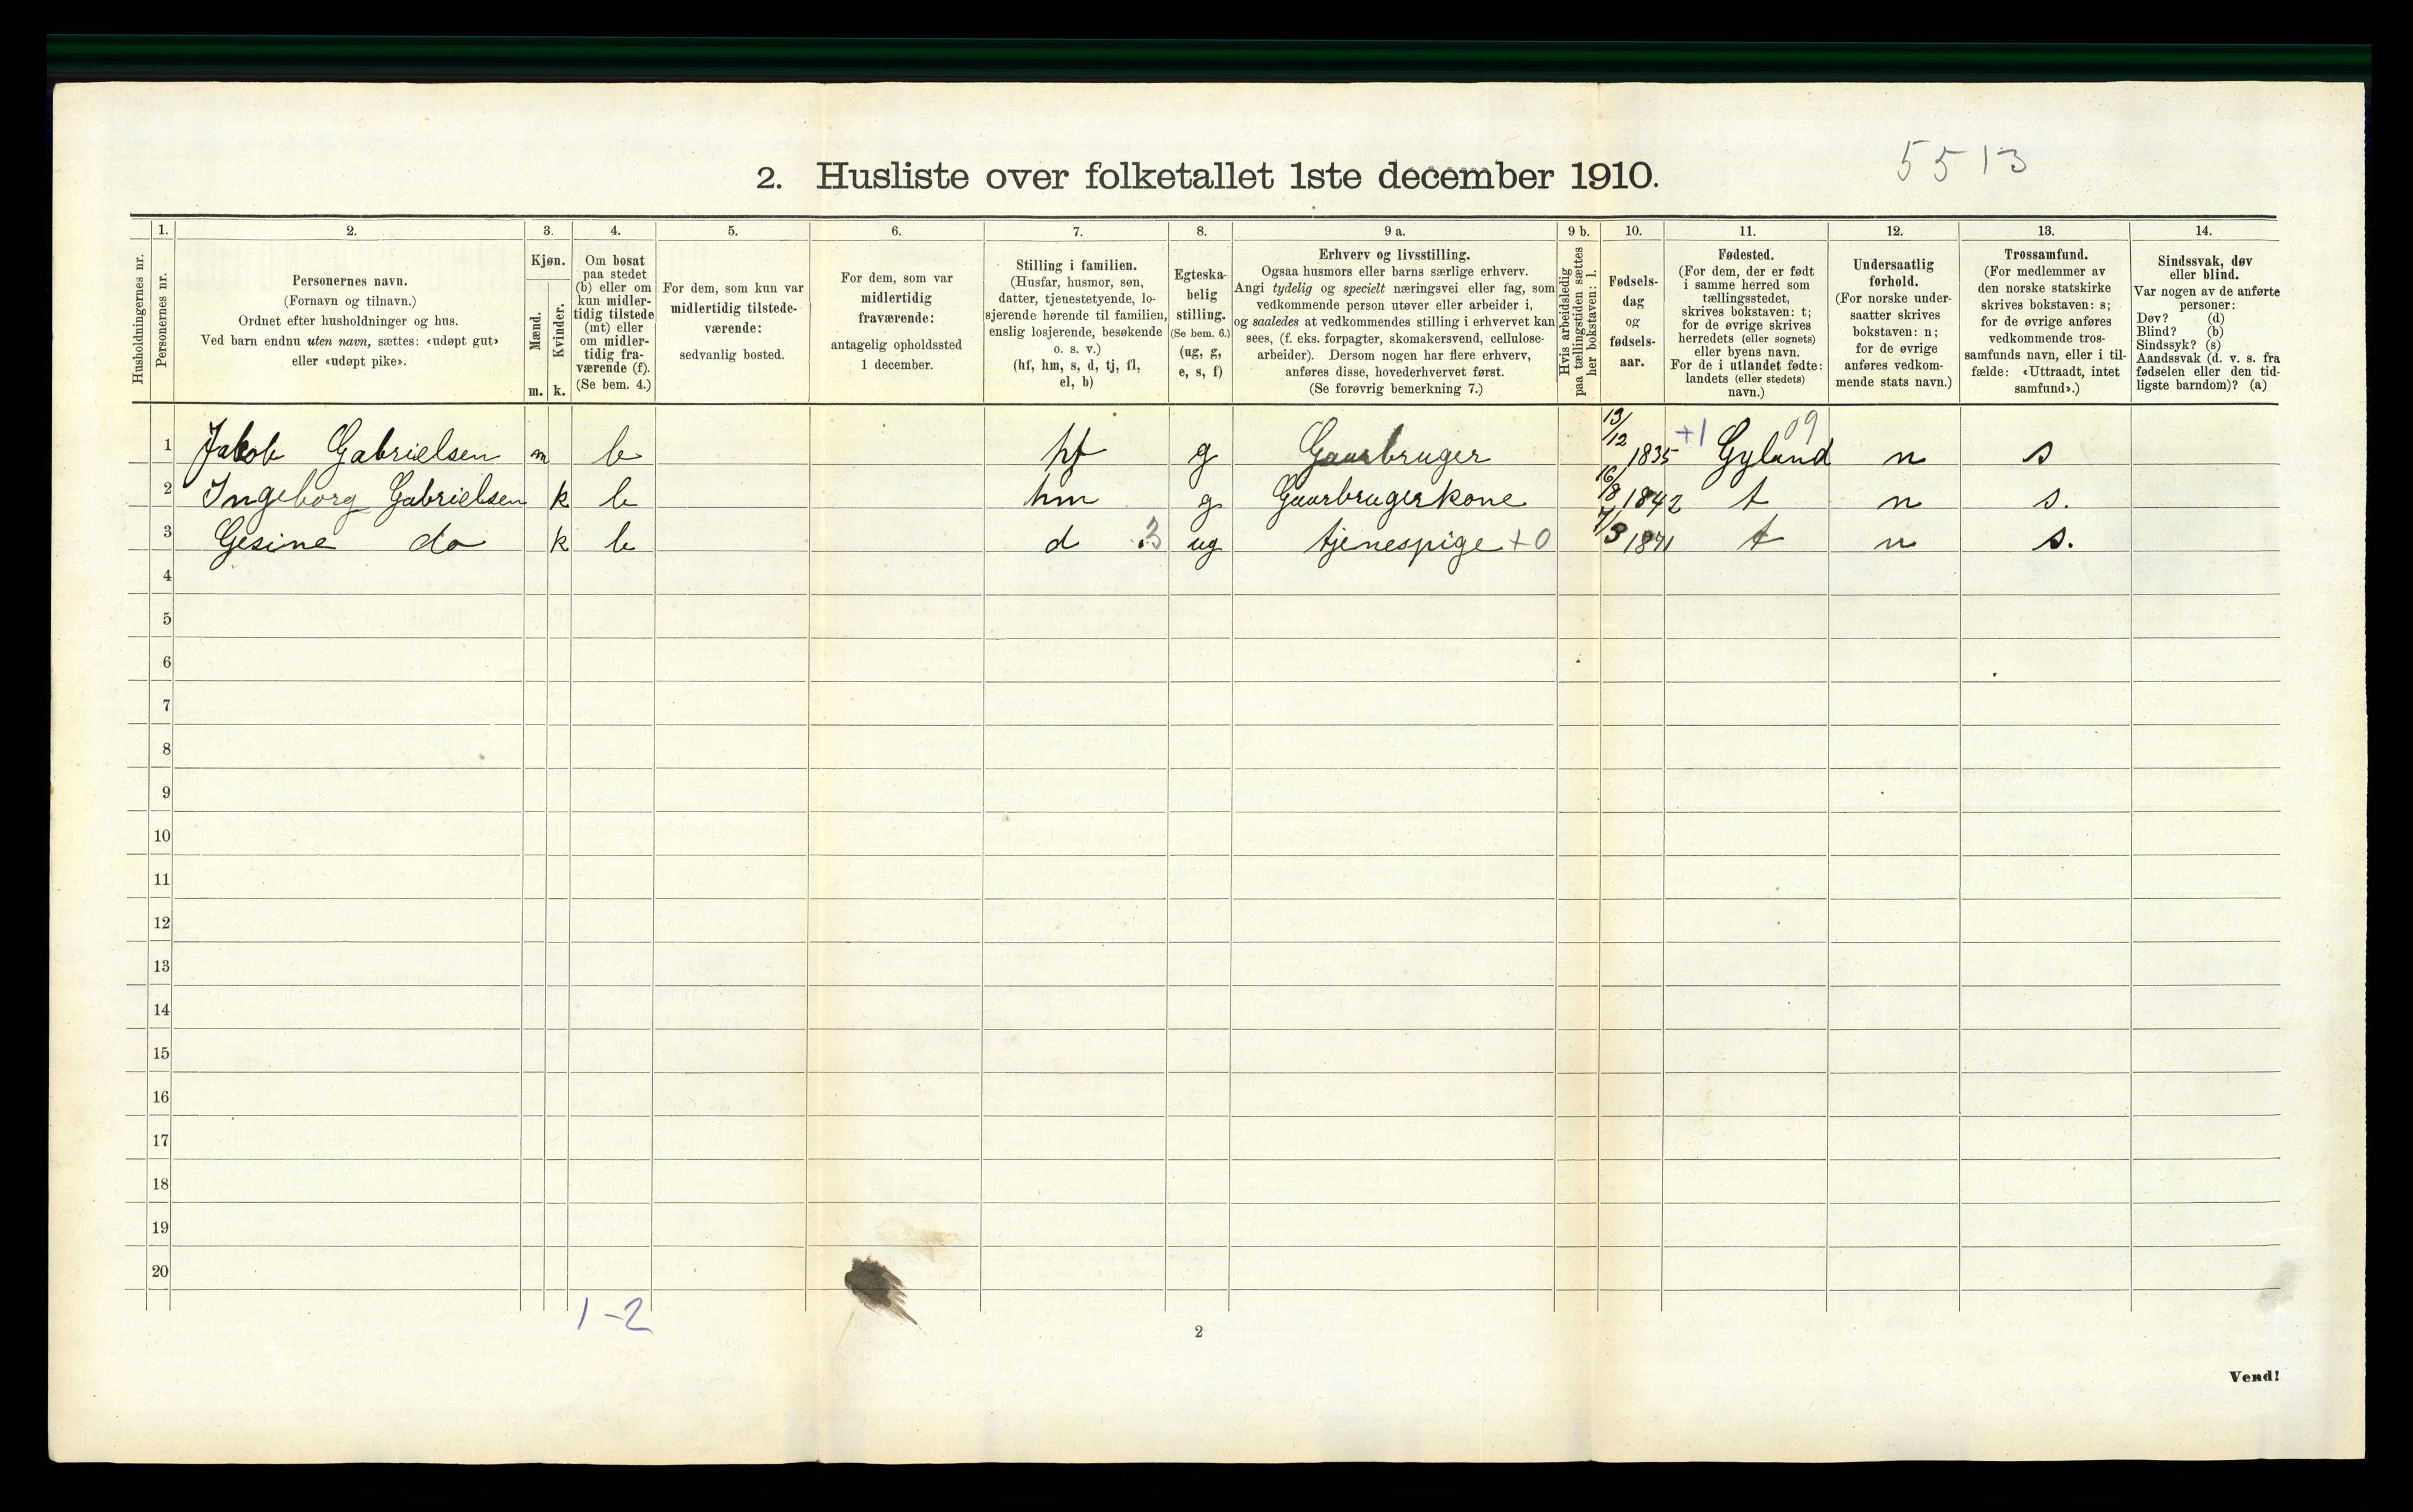 5513
2. Husliste over folketallet 1ste december 1910.
Husholdningernes nr.
1.
Personernes nr.
2.
Personernes navn.
(Fornavn og tilnavn.)
Ordnet efter husholdninger og hus.
Ved barn endnu uten navn, sættes: «udøpt gut»
eller «udøpt pike».
3.
Kjøn.
Mænd.
m.
Kvinder.
k.
4.
Om bosat
paa stedet
(b) eller om
kun midler-
tidig tilstede
(mt) eller
om midler-
tidig fra-
værende (f).
(Se bem. 4.)
5.
For dem, som kun var
midlertidig tilstede-
værende:
sedvanlig bosted.
6.
For dem, som var
midlertidig
fraværende:
antagelig opholdssted
1 december.
7.
Stilling i familien.
(Husfar, husmor, søn,
datter, tjenestetyende, lo-
sjerende hørende til familien,
enslig losjerende, besøkende
o. s. v.)
(hf, hm, s, d, tj, fl,
el, b)
8.
Egteska-
belig
stilling.
(Se bem. 6.)
(ug, g,
e, s, f)
9 a.
Erhverv og livsstilling.
Ogsaa husmors eller barns særlige erhverv.
Angi tydelig og specielt næringsvei eller fag, som
vedkommende person utøver eller arbeider i,
og saaledes at vedkommendes stilling i erhvervet kan
sees, (f. eks. forpagter, skomakersvend, cellulose-
arbeider). Dersom nogen har flere erhverv,
anføres disse, hovederhvervet først.
(Se forøvrig bemerkning 7.)
9 b.
Hvis arbeidsledig
paa tællingstiden sættes
her bokstaven: l.
10.
Fødsels-
dag
og
fødsels-
aar.
11.
Fødested.
(For dem, der er født
i samme herred som
tællingsstedet,
skrives bokstaven: t;
for de øvrige skrives
herredets (eller sognets)
eller byens navn.
For de i utlandet fødte:
landets (eller stedets)
navn.)
12.
Undersaatlig
forhold.
(For norske under-
saatter skrives
bokstaven: n;
for de øvrige
anføres vedkom-
mende stats navn.)
13.
Trossamfund.
(For medlemmer av
den norske statskirke
skrives bokstaven: s;
for de øvrige anføres
vedkommende tros-
samfunds navn, eller i til-
fælde: «Uttraadt, intet
samfund».)
14.
Sindssvak, døv
eller blind.
Var nogen av de anførte
personer:
Døv? (d)
Blind? (b)
Sindssyk? (s)
Aandssvak (d. v. s. fra
fødselen eller den tid-
ligste barndom)? (a)
1 Jakob Gabrielsen m b hf g Gaarbruger 13/12 1835 +1 Gyland 09 n s
2 Ingeborg Gabrielsen k b hm g Gaarbrugerkone 16/8 1842 t n s.
3 Gesine do k b d .3 ug tjenespige +0 7/3 1871 t n s.
4
5
6
7
8
9
10
11
12
13
14
15
16
17
18
19
20
1-2
2
Vend!